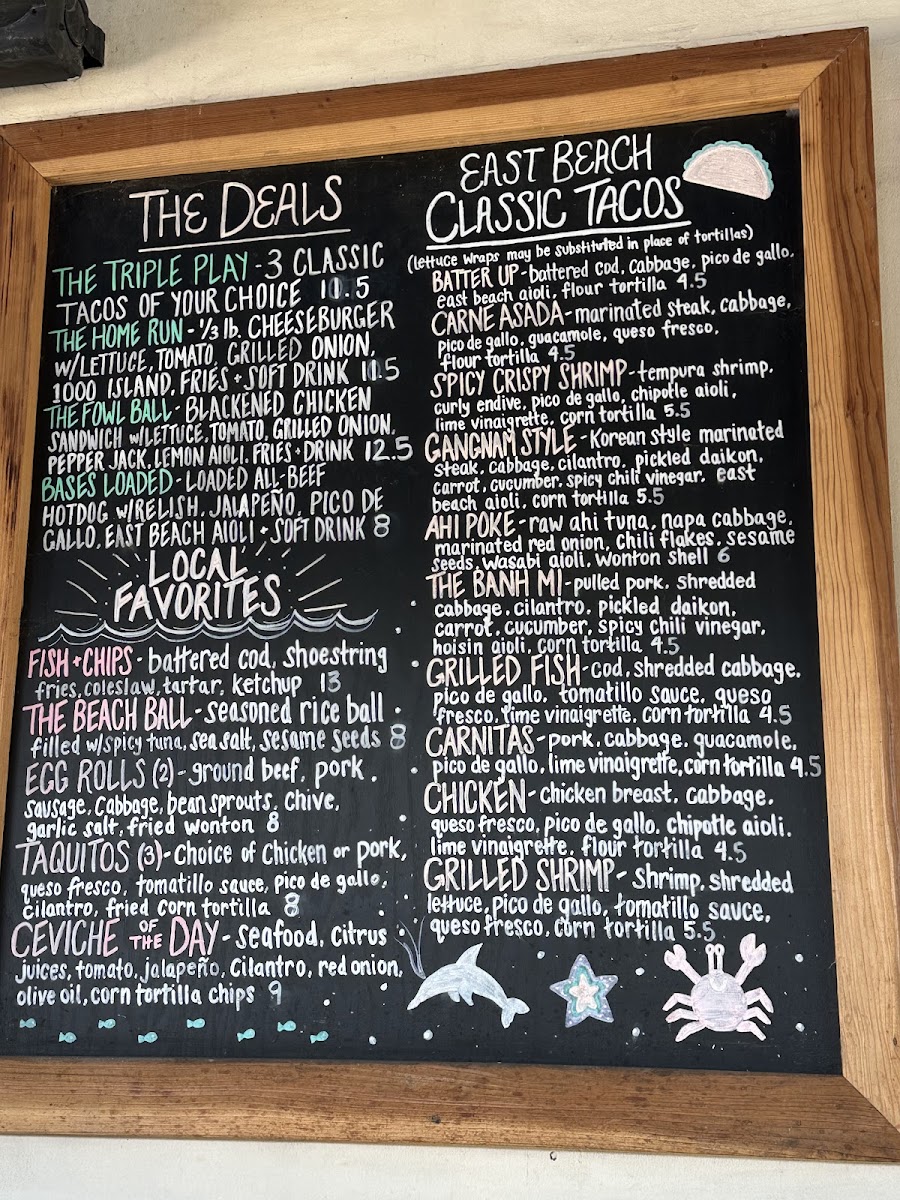 THE DEALS
THE TRIPLE PLAY - 3 CLASSIC
TACOS OF YOUR CHOICE 10.5
THE HOME RUN - 1/3 lb. CHEESEBURGER
W/LETTUCE, TOMATO, GRILLED ONION,
1000 ISLAND, FRIES + SOFT DRINK 11.5
THE FOWL BALL - BLACKENED CHICKEN
SANDWICH W/LETTUCE, TOMATO, GRILLED ONION,
PEPPER JACK, LEMON AIOLI, FRIES + DRINK 12.5
BASES LOADED - LOADED ALL-BEEF
HOTDOG W/RELISH, JALAPEÑO, PICO DE
GALLO, EAST BEACH AIOLI + SOFT DRINK 8
LOCAL
FAVORITES
FISH + CHIPS - battered cod, shoestring
fries, coleslaw, tartar, ketchup 13
THE BEACH BALL - seasoned rice ball
filled w/spicy tuna, sea salt, sesame seeds 8
EGG ROLLS (2) - ground beef, pork,
sausage, cabbage, bean sprouts, chive,
garlic salt, fried wonton 8
TAQUITOS (3) - Choice of Chicken or pork,
queso fresco, tomatillo sauce, pico de gallo,
cilantro, fried corn tortilla 8
CEVICHE OF THE DAY - seafood, citrus
juices, tomato, jalapeño, cilantro, red onion,
olive oil, corn tortilla chips 9
EAST BEACH
CLASSIC TACOS
(lettuce wraps may be substituted in place of tortillas)
BATTER UP - battered cod, cabbage, pico de gallo,
east beach aioli, flour tortilla 4.5
CARNE ASADA - marinated steak, cabbage,
pico de gallo, guacamole, queso fresco,
flour tortilla 4.5
SPICY CRISPY SHRIMP - tempura shrimp,
curly endive, pico de gallo, chipotle aioli,
lime vinaigrette, corn tortilla 5.5
GANGNAM STYLE - Korean style marinated
steak, cabbage, cilantro, pickled daikon,
carrot, cucumber, spicy chili vinegar, east
beach aioli, corn tortilla 5.5
AHI POKE - raw ahi tuna, napa cabbage,
marinated red onion, chili flakes, sesame
seeds, wasabi aioli, wonton shell 6
THE BANH MI - pulled pork, shredded
cabbage, cilantro, pickled daikon,
carrot, cucumber, spicy chili vinegar,
hoisin aioli, corn tortilla 4.5
GRILLED FISH - cod, shredded cabbage,
pico de gallo, tomatillo sauce, queso
fresco, lime vinaigrette, corn tortilla 4.5
CARNITAS - pork, cabbage, guacamole,
pico de gallo, lime vinaigrette, corn tortilla 4.5
CHICKEN - chicken breast, cabbage,
queso fresco, pico de gallo, chipotle aioli,
lime vinaigrette, flour tortilla 4.5
GRILLED SHRIMP - shrimp, shredded
lettuce, pico de gallo, tomatillo sauce,
queso fresco, corn tortilla 5.5